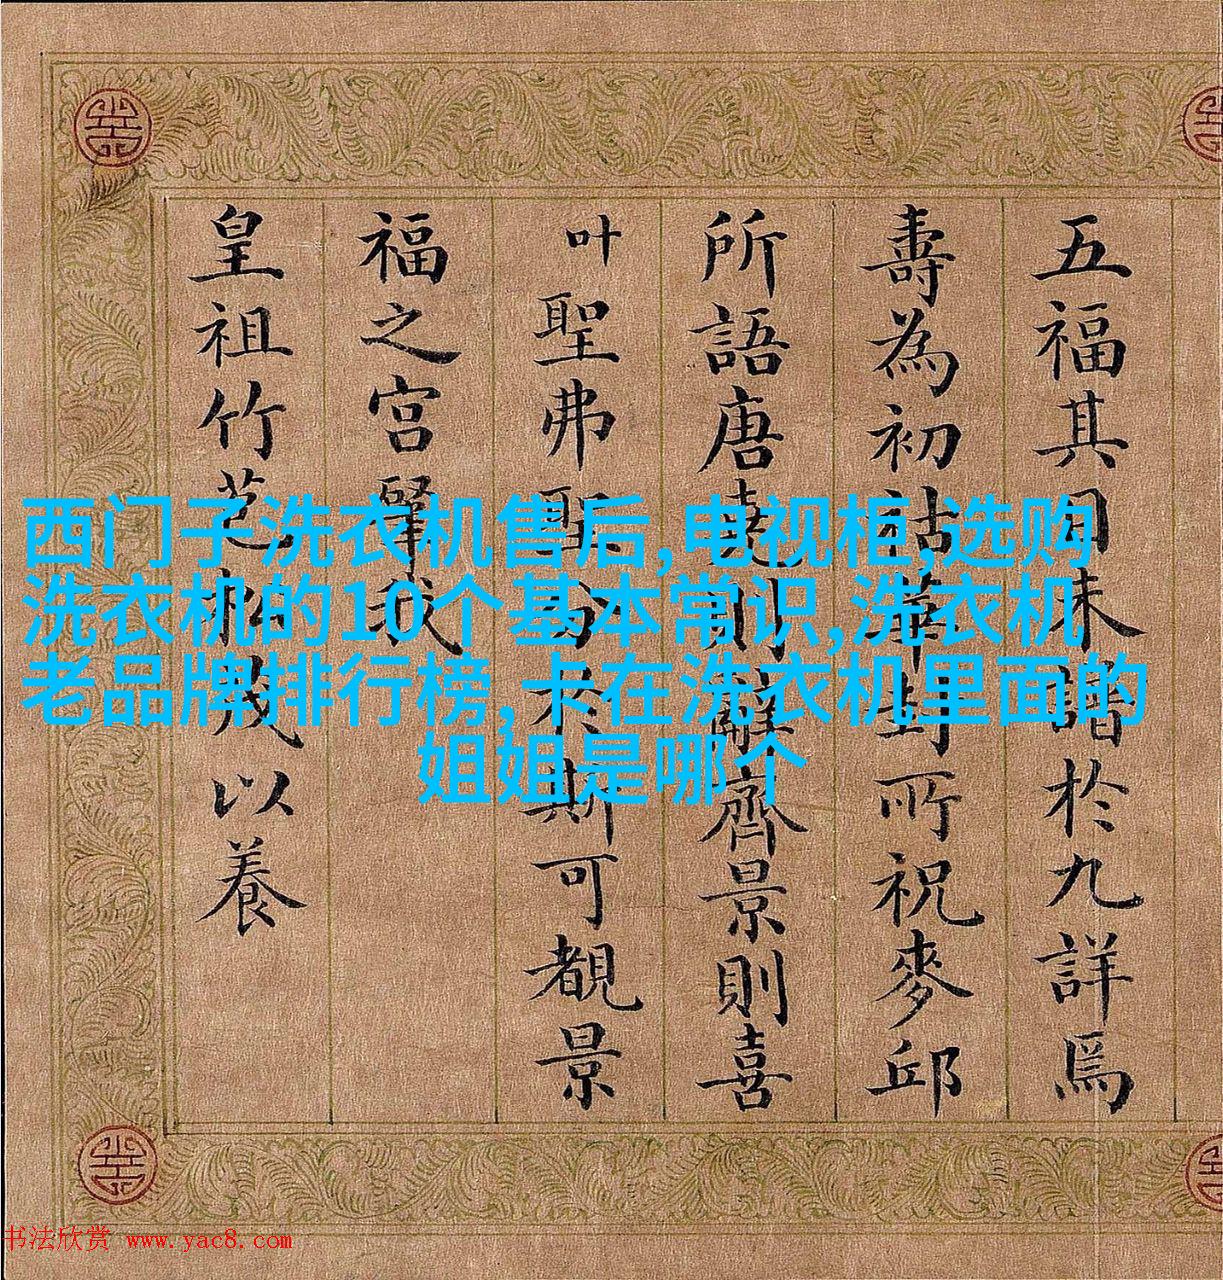 五福其目於九詳爲
壽為初祜華封所祝麥邱
所語唐堯則辭齊景則喜
叶聖弗聖斯可覩景
福之宮肇我
皇祖竹以養
西门子洗衣机售后,电视柜,选购
洗衣机的10个基本常识,洗衣机
老品牌排行榜,卡在洗衣机里面的
姐姐是哪个
书法欣赏 www.yac8.com